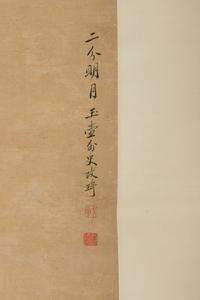 二分明月 玉壺外史改琦